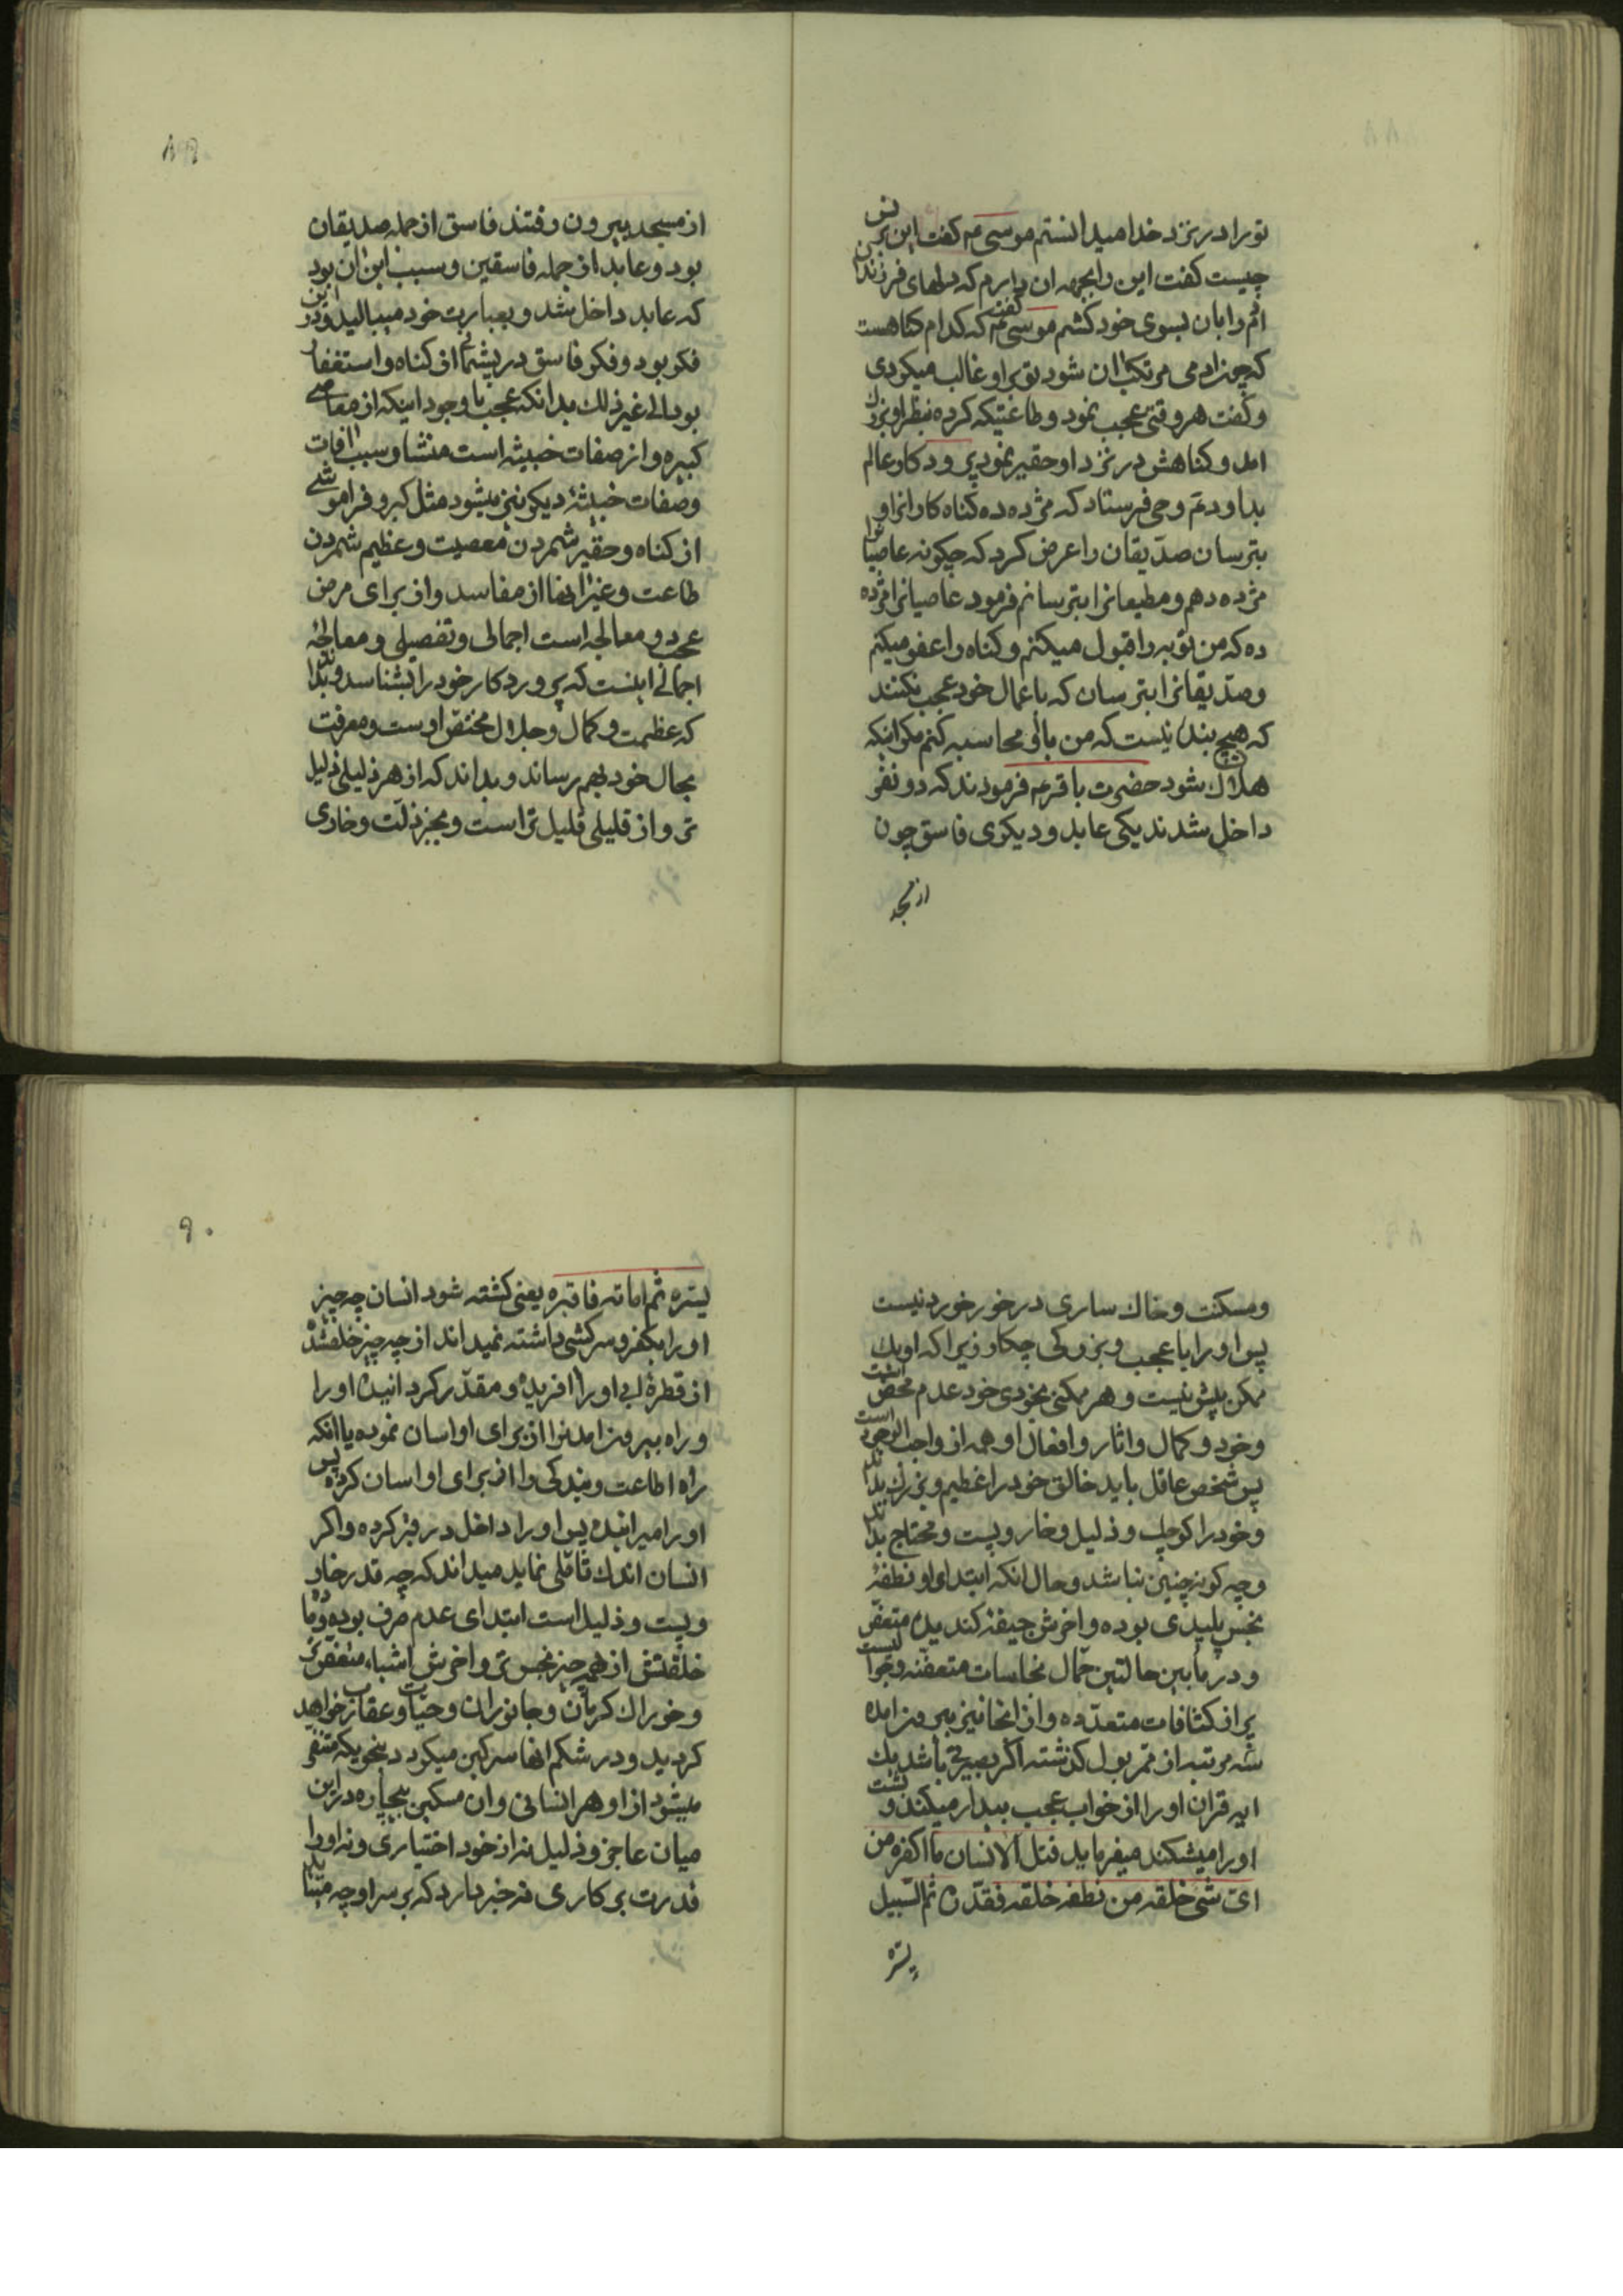 تو را در نزد خدا میدانستم موسی ع گفت این برنس
چیست گفت این را بجهه ان دارم که دلهای فرزندان
ادم را بان بسوی خود کشم موسی ع گفت که کدام کناهست
که چون ادمی مرتکب ان شود تو بر او غالب میکردی
و گفت هر وقتی عجب نمود و طاعتیکه کرده بنظر او بزرک
امد و کناهش در نزد او حقیر نمودپرودکار عالم
بداود ع وحی فرستاد که مژده ده کناه کاران او
بترسان صدّیقان را عرض کرد که چکونه عاصیانرا
مژده دهم و مطیعانرا بترسانم فرمود عاصیانرا مژده
ده که من توبه را قبول میکنم و کناه را عفو میکنم
و صدّیقانرا بترسان که باعمال خود عجب نکنند
که هیچ بندۀ نیست که من با او محاسبه کنم مکر اینکه
هلاك شود حضرت باقر ع فرمودند که دو نفر
داخل شدند یکی عابد و دیکری فاسق چون
از مسجد
۸۹
از مسجد بیرون رفتند فاسق از جمله صدیقان
بود و عابد از جمله فاسقین و سبب این ان بود
که عابد داخل شد و بعبادت خود میبالید و در این
فکر بود و فکر فاسق در پشیمانی از کناه و استغفار
بود الی غیر ذلك بدانکه عجب با وجود اینکه از معاصی
کبیره و از صفات خبیثه است منشا و سبب افات
و صفات خبیثۀ دیکر نیز میشود مثل کبر و فراموشی
از کناه و حقیر شمردن معصیت و عظیم شمردن
طاعت و غیر اینها از مفاسد و از برای مرض
عجب دو معالجه است اجمالی و تفصیلی و معالجۀ
اجمالی اینست که پروردکار خود را بشناسد و بداند
که عظمت و کمال و جلال مختص اوست و معرفت
بحال خود بهم رساند و بداند که از هر ذلیلی ذلیل
تر و از قلیلی قلیل تر است و بجز ذلّت و خاری
و مسکنت و خاك ساری در خور خورد نیست
پس او را با عجب و بزرکی چکار زیرا که او یك
ممکن بیش نیست و هر ممکنی بخودی خود عدم محض است
و خود و کمال و اثار و افعال او همه از واجب الوجود است
پس شخص عاقل باید خالق خود را عظیم و بزرك بداند
و خود را کوچك و ذلیل و خار و پست و محتاج بداند
و چه کونه چنین نباشد و حال انکه ابتدای او نطفۀ
نجس پلیدی بوده و اخرش جیفۀ کندیدۀ متعفن
و در مابین حالتین حمّال نجاسات متعفنه و جوالیست
پر از کثافات متعدّده و از انجا نیز بیرون امده
سه مرتبه از ممّر بول کذشته اکر بصیرتی باشد یك
ایه قران او را از خواب عجب بیدار میکند و پشت
او را میشکند میفرماید قتل الانسان ما اکفره من
ایّ شی خلقه من نطفه خلقه فقدّره ثم السّبیل
یسّره
۹۰
یسّره ثم اماته فاقبره یعنی کشته شود انسان چه چیز
او را بکفر و سرکشی داشته نمیداند از چه چیز خلق شده
از قطرۀ ابی او را افریده و مقدّر کردانیده او را
و راه بیرون امدنرا از برای او اسان نموده یا انکه
راه اطاعت و بندکی را از برای او اسان کرده پس
او را میرانیده پس او را داخل در قبر کرده و اکر
انسان اندك تاملی نماید میداند که چه قدر خار
و پست و ذلیل است ابتدای عدم صرف بوده و ما
خلقتش از همه چیز نجس تر و اخرش اشیاء متعفن تر
و خوراك کرمان و جانوران و حیات و عقارب خواهد
کردید و در شکم انها سرکین میکردد بنحویکه متنفر
میشود از او هر انسانی و ان مسکین بیچاره در این
میان عاجز و ذلیل نه از خود اختیاری و نه او را
قدرت بر کاری نه خبر دارد که بر سر او چه